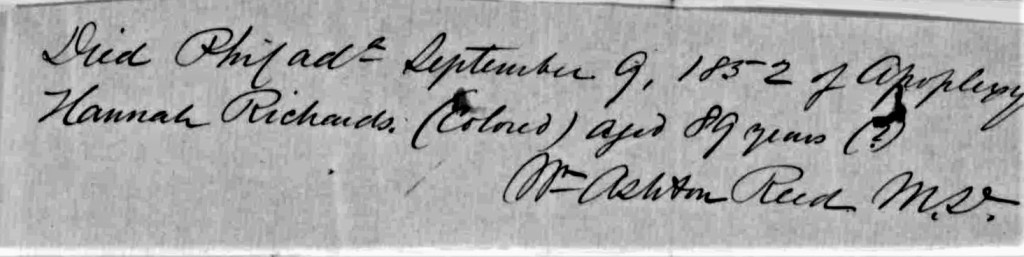 Died Philada September 9, 1852 of Apoplexy
Hannah Richards. (Colored) aged 89 years (?)
Wm Ashton Reed M.D.